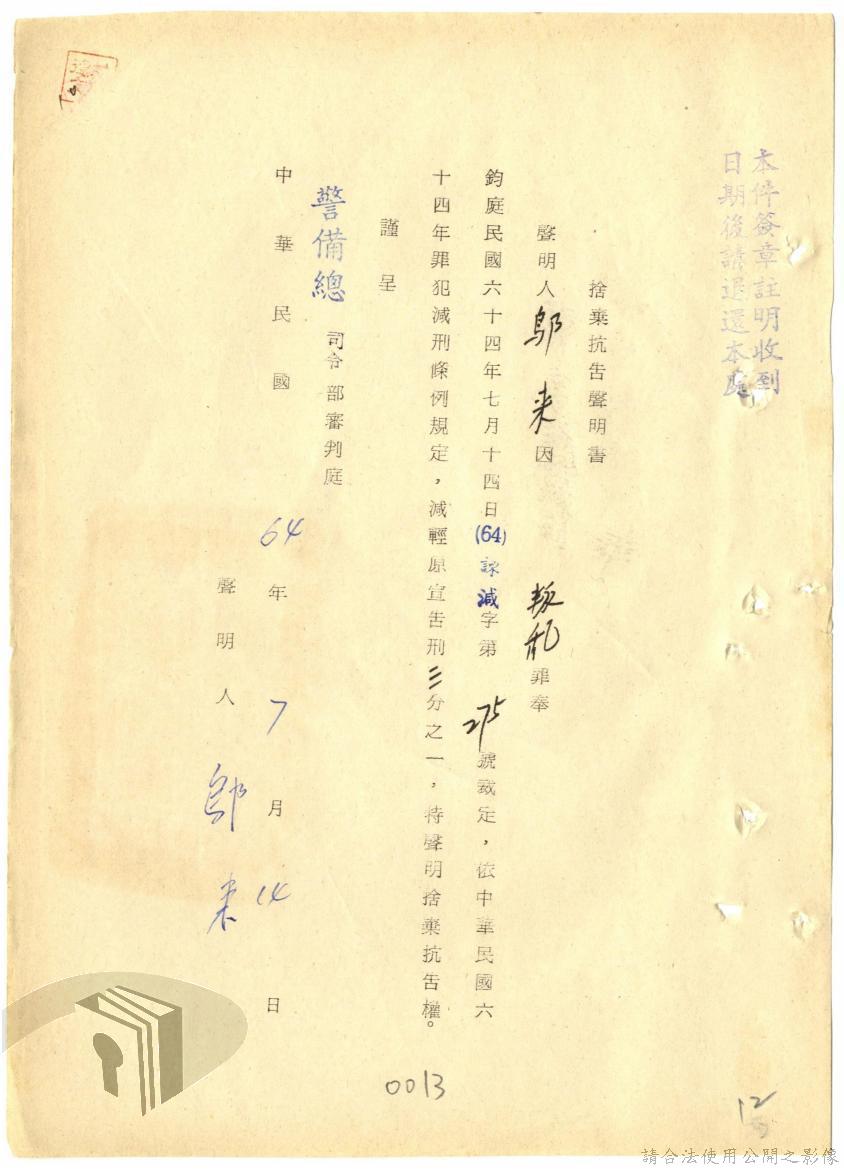 本件簽章註明收到
日期後請退還本處
捨棄抗告聲明書
聲明人鄔來因叛亂罪奉
鈞庭民國六十四年七月十四日(64)諫減字第275號裁定，依中華民國六
十四年罪犯減刑條例規定，減輕原宣告刑三分之一，特聲明捨棄抗告權。
謹呈
警備總司令部審判庭
中華民國64年7月14日
聲明人鄔來
0013
12
請合法使用公開之影像